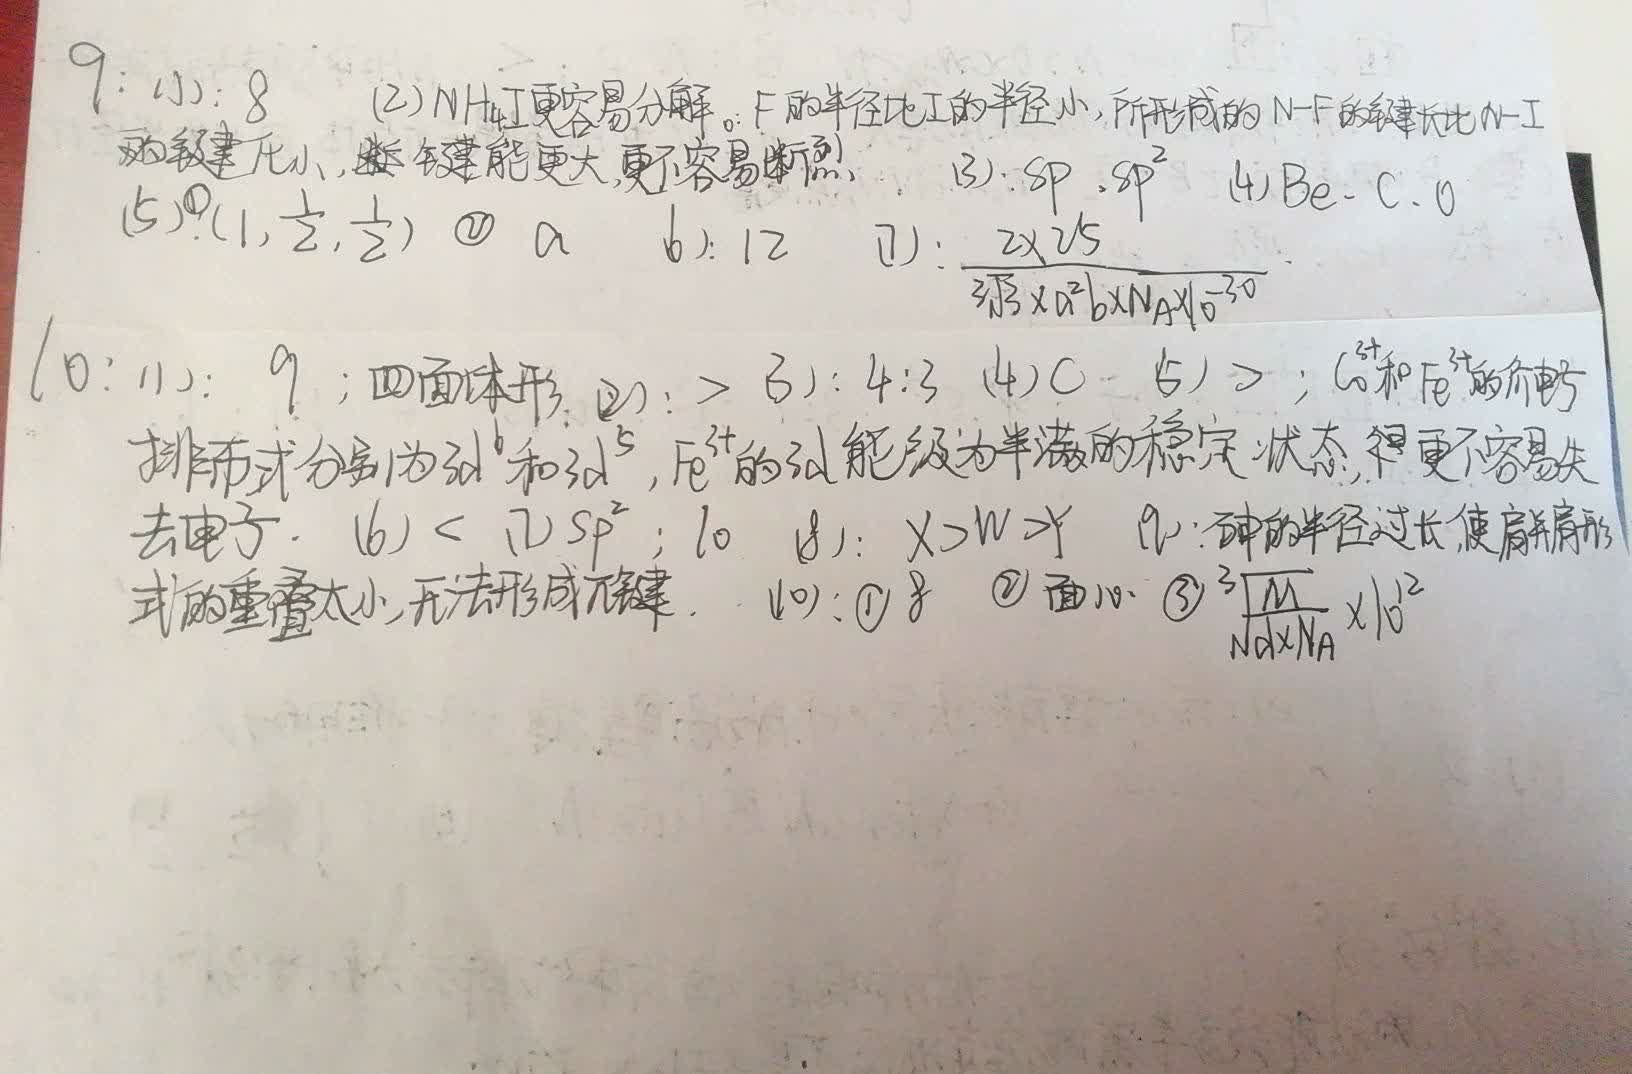 9: (1): 8 (2) NH₄I更容易分解。F的半径比I的半径小,所形成的N-F的键长比N-I
的键长小,键能更大,更不容易断裂 (3): sp、sp² (4) Be、C、O
(5) ①(1, 1/2, 1/2) ② a 6): 12 (7): 2×25/(3√3×a²b×N_A×10⁻³⁰)
10: (1): 9 ; 四面体形 (2): > 3): 4:3 (4) C (5) > ; Co³⁺和Fe³⁺的价电子
排布式分别为3d⁶和3d⁵, Fe³⁺的3d能级为半满的稳定状态,更不容易失
去电子. (6) < (7) sp² ; 10 (8): X>W>Y (9): 砷的半径过长,使肩并肩形
式的重叠太小,无法形成π键. (10): ① 8 ② 面心 ③ ³√(M/(d×N_A))×10¹²